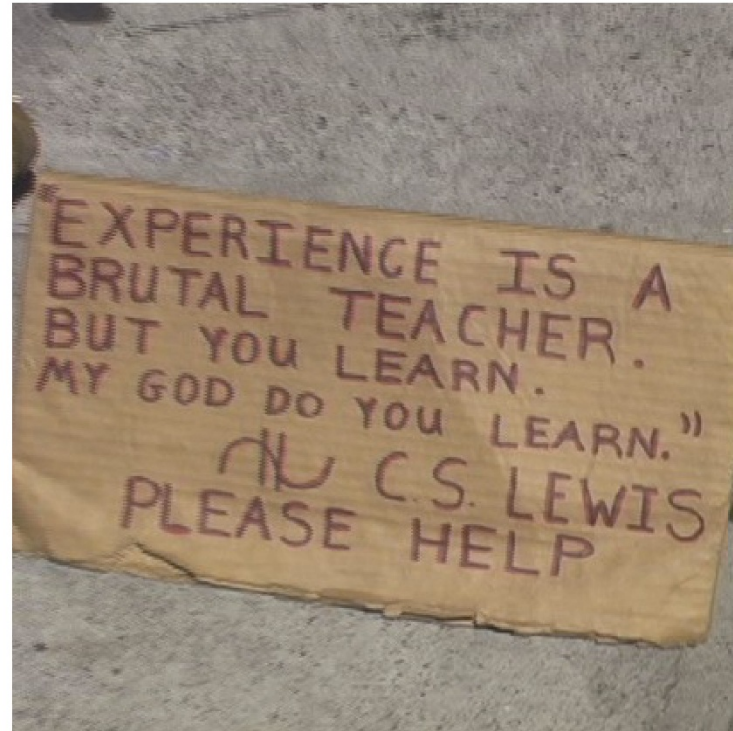 "EXPERIENCE IS A
BRUTAL TEACHER.
BUT YOU LEARN.
MY GOD DO YOU LEARN."
C.S. LEWIS
PLEASE HELP